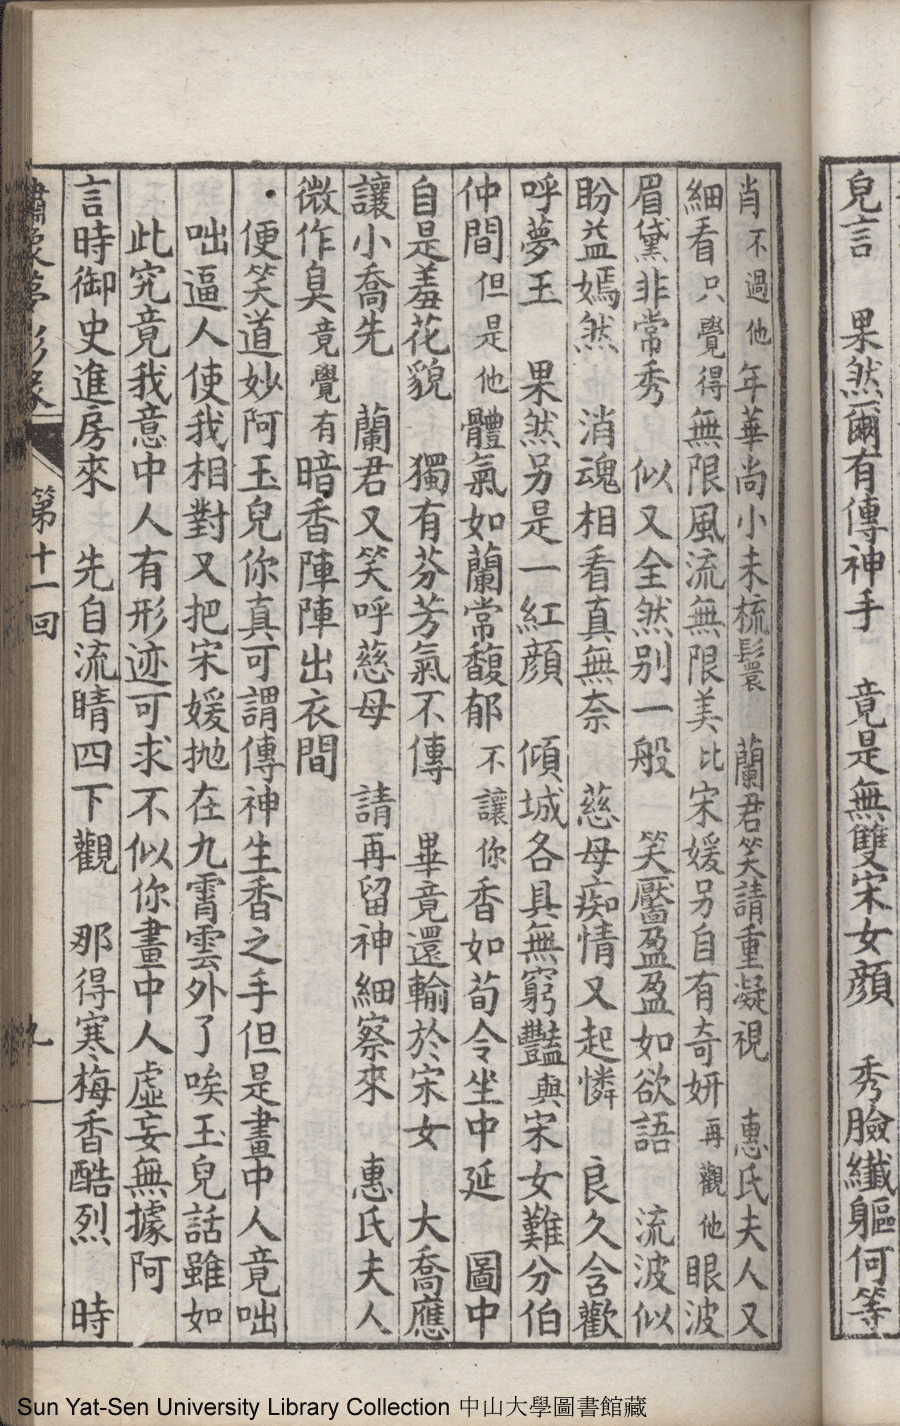 兒言　果然爾有傳神手　竟是無雙宋女顏　秀臉纖軀何等
肖不過他年華尚小未梳鬟　蘭君笑請重凝視　惠氏夫人又
細看只覺得無限風流無限美比宋媛另自有奇妍再觀他眼波
眉黛非常秀　似又全然別一般　笑靨盈盈如欲語　流波似
盼益嫣然　消魂相看真無奈　慈母痴情又起憐　良久含歡
呼夢玉　果然另是一紅顏　傾城各具無窮豔與宋女難分伯
仲間但是他體氣如蘭常馥郁不讓你香如荀令坐中延　圖中
自是羞花貌　獨有芬芳氣不傳　畢竟還輸於宋女　大喬應
讓小喬先　蘭君又笑呼慈母　請再留神細察來　惠氏夫人
微作臭竟覺有暗香陣陣出衣間
・便笑道妙阿玉兒你真可謂傳神生香之手但是畫中人竟咄
咄逼人使我相對又把宋媛拋在九霄雲外了唉玉兒話雖如
此究竟我意中人有形迹可求不似你畫中人虛妄無據阿
言時御史進房來　先自流睛四下觀　那得寒梅香酷烈　時
第十一回
九
Sun Yat-Sen University Library Collection 中山大學圖書館藏